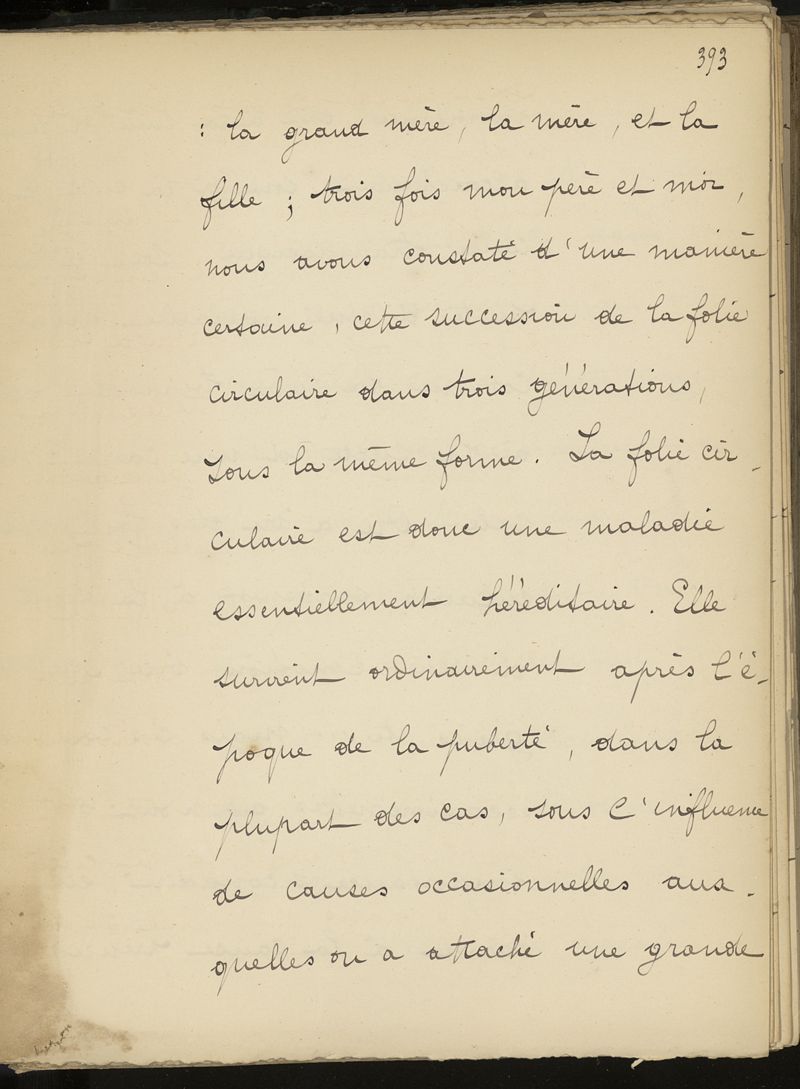 393
: la grand mère, la mère, et la
fille ; trois fois mon père et moi,
nous avons constaté d'une manière
certaine, cette succession de la folie
circulaire dans trois générations,
sous la même forme. La folie cir-
culaire est donc une maladie
essentiellement héréditaire. Elle
survient ordinairement après l'é-
poque de la puberté, dans la
plupart des cas, sous l'influence
de causes occasionnelles aux-
quelles on a attaché une grande